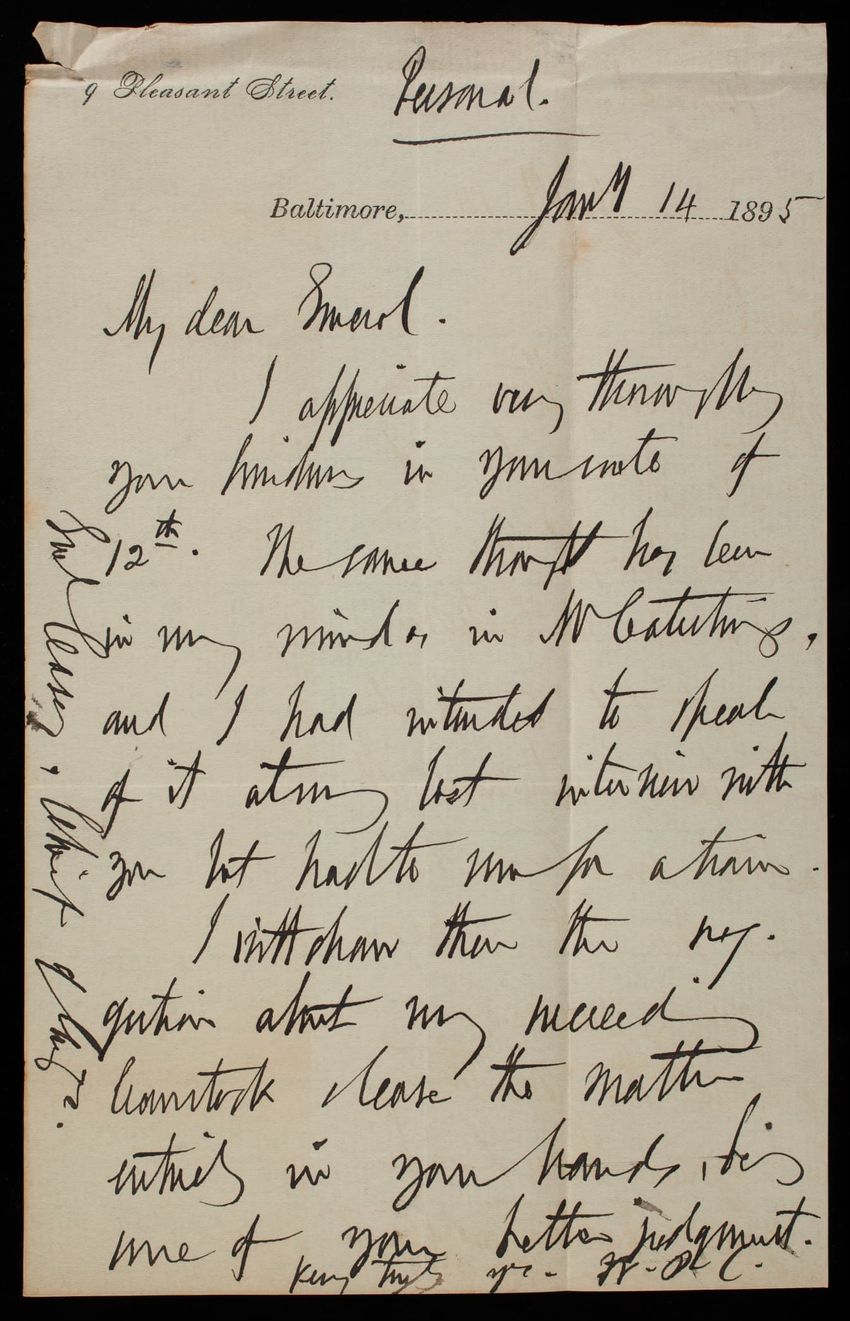 9 Pleasant Street.
Personal.
Baltimore, Jany 14 1895
My dear
I appreciate very thoroughly
your kindness in your note of
12th. The same thought has been
in my mind as in
and I had intended to speak
of it at my last interview with
you but had to run for a train.
I withdraw then the sug-
gestion about my succeeding
Comstock & leave the matter
entirely in your hands, being
sure of your better judgment.
Very truly yrs. W. P. C.
Chief of Engrs.